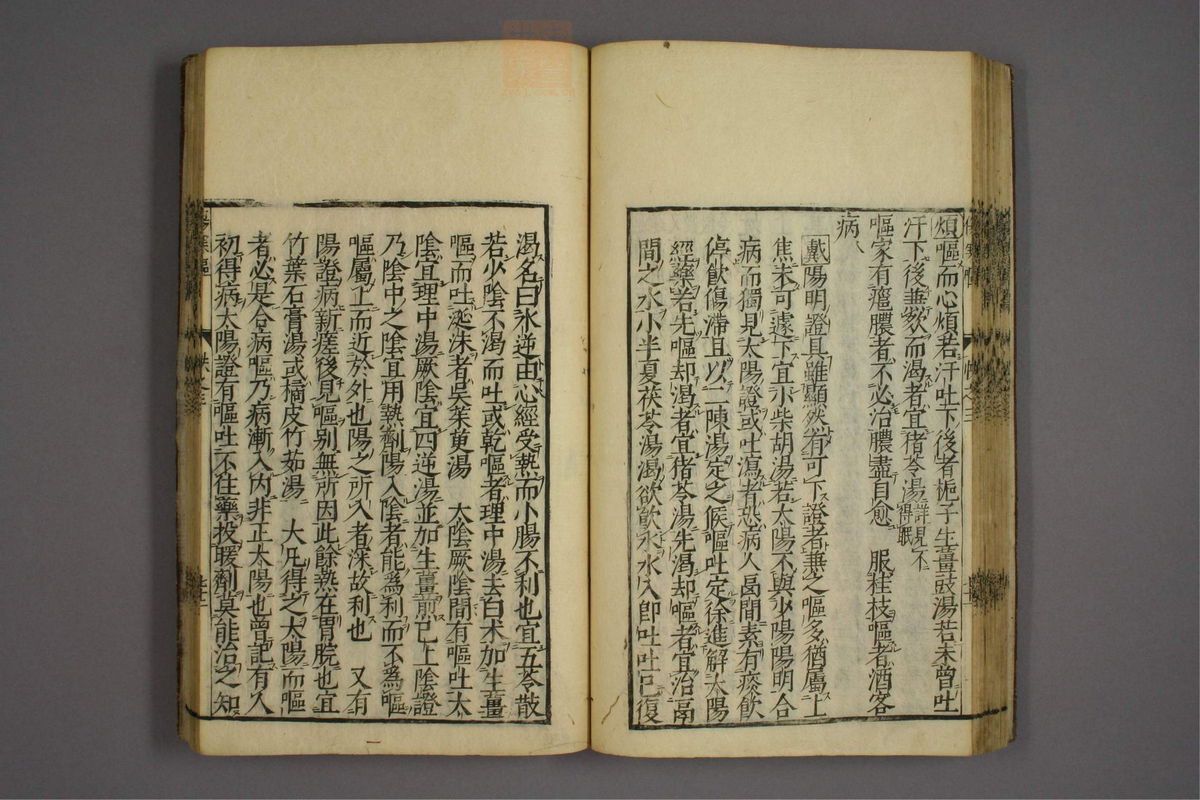 煩嘔而心煩若汗吐下後者梔子生薑豉湯若未曾吐
汗下後兼欬而渴者宜猪苓湯詳見不得眠
嘔家有癰膿者不必治膿盡自愈　服桂枝嘔者酒客
病
戴陽明證具雖顯然有可下證者兼之嘔多猶屬上
焦未可遽下宜小柴胡湯若太陽不與少陽陽明合
病而獨見太陽證或吐瀉者恐病人膈間素有痰飲
停飲傷滯且以二陳湯定之候嘔吐定徐進解太陽
經藥若先嘔却渴者宜猪苓湯先渴却嘔者宜治膈
間之水小半夏茯苓湯渴欲飲水水入即吐吐已復
渴名曰水逆由心經受熱而小腸不利也宜五苓散
若少陰不渴而吐或乾嘔者理中湯去白朮加生薑
嘔而吐涎沫者吳茱萸湯　太陰厥陰間有嘔吐太
陰宜理中湯厥陰宜四逆湯並加生薑煎已上陰證
乃陰中之陰宜用熱劑陽入陰者能為利而不為嘔
嘔屬上而近於外也陽之所入者深故利也　又有
陽證病新瘥後見嘔別無所因此餘熱在胃脘也宜
竹葉石膏湯或橘皮竹茹湯　大凡得之太陽而嘔
者必是合病嘔乃病漸入內非正太陽也曾記有人
初得病太陽證有嘔吐不住藥投暖劑莫能治之知